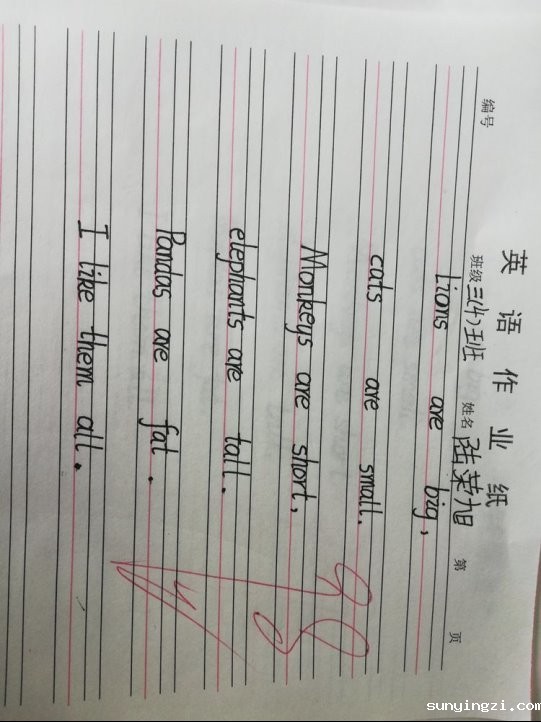 英语作业纸
编号 班级 三(4)班 姓名 陆荣旭 第 页
Lions are big,
cats are small.
Monkeys are short,
elephants are tall.
Pandas are fat.
I like them all.
98
sunyingzi.com